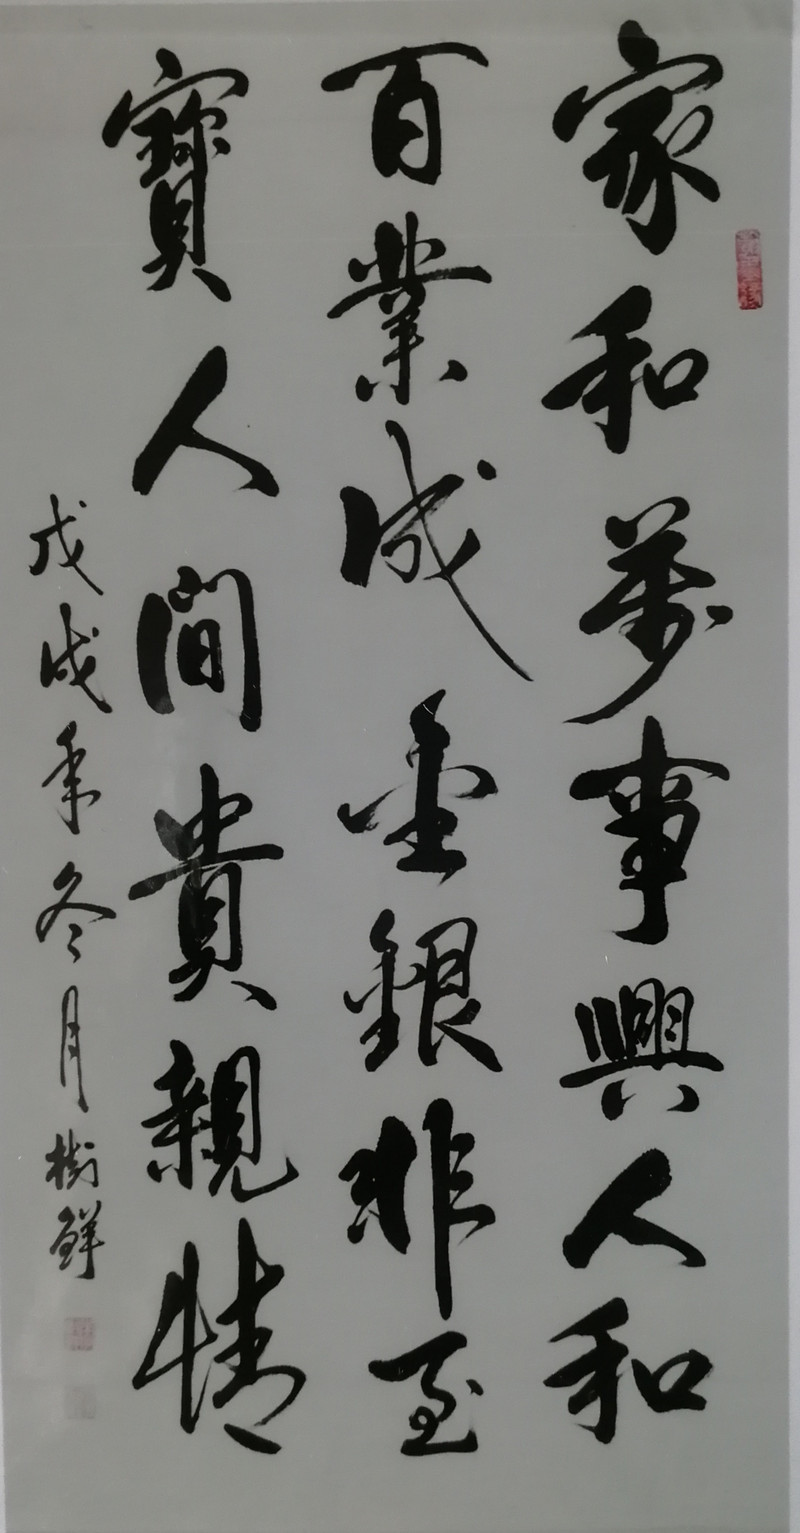 家和萬事興人和
百業成金銀非至
寶人間貴親情
戊戌年冬月樹鮮